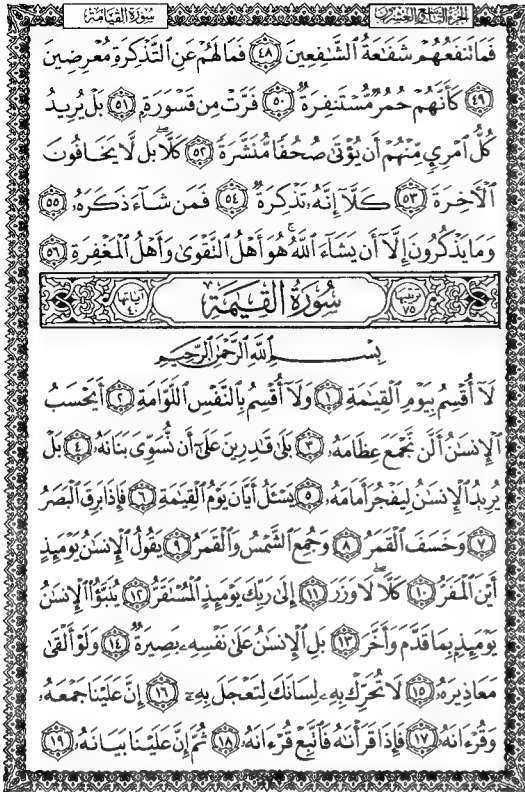 الجزء التاسع والعشرون سورة القيامة
فَمَا تَنفَعُهُمْ شَفَاعَةُ الشَّافِعِينَ ٤٨ فَمَا لَهُمْ عَنِ التَّذْكِرَةِ مُعْرِضِينَ
٤٩ كَأَنَّهُمْ حُمُرٌ مُّسْتَنفِرَةٌ ٥٠ فَرَّتْ مِن قَسْوَرَةٍ ٥١ بَلْ يُرِيدُ
كُلُّ ٱمْرِئٍ مِّنْهُمْ أَن يُؤْتَىٰ صُحُفًا مُّنَشَّرَةً ٥٢ كَلَّا ۖ بَل لَّا يَخَافُونَ
ٱلْآخِرَةَ ٥٣ كَلَّآ إِنَّهُۥ تَذْكِرَةٌ ٥٤ فَمَن شَآءَ ذَكَرَهُۥ ٥٥
وَمَا يَذْكُرُونَ إِلَّآ أَن يَشَآءَ ٱللَّهُ ۚ هُوَ أَهْلُ ٱلتَّقْوَىٰ وَأَهْلُ ٱلْمَغْفِرَةِ ٥٦
ترتيبها ٧٥ سُورَةُ القِيَٰمَةِ آياتها ٤٠
بِسْمِ ٱللَّهِ ٱلرَّحْمَٰنِ ٱلرَّحِيمِ
لَآ أُقْسِمُ بِيَوْمِ ٱلْقِيَٰمَةِ ١ وَلَآ أُقْسِمُ بِٱلنَّفْسِ ٱللَّوَّامَةِ ٢ أَيَحْسَبُ
ٱلْإِنسَٰنُ أَلَّن نَّجْمَعَ عِظَامَهُۥ ٣ بَلَىٰ قَٰدِرِينَ عَلَىٰٓ أَن نُّسَوِّىَ بَنَانَهُۥ ٤ بَلْ
يُرِيدُ ٱلْإِنسَٰنُ لِيَفْجُرَ أَمَامَهُۥ ٥ يَسْـَٔلُ أَيَّانَ يَوْمُ ٱلْقِيَٰمَةِ ٦ فَإِذَا بَرِقَ ٱلْبَصَرُ
٧ وَخَسَفَ ٱلْقَمَرُ ٨ وَجُمِعَ ٱلشَّمْسُ وَٱلْقَمَرُ ٩ يَقُولُ ٱلْإِنسَٰنُ يَوْمَئِذٍ
أَيْنَ ٱلْمَفَرُّ ١٠ كَلَّا لَا وَزَرَ ١١ إِلَىٰ رَبِّكَ يَوْمَئِذٍ ٱلْمُسْتَقَرُّ ١٢ يُنَبَّؤُا۟ ٱلْإِنسَٰنُ
يَوْمَئِذٍۭ بِمَا قَدَّمَ وَأَخَّرَ ١٣ بَلِ ٱلْإِنسَٰنُ عَلَىٰ نَفْسِهِۦ بَصِيرَةٌ ١٤ وَلَوْ أَلْقَىٰ
مَعَاذِيرَهُۥ ١٥ لَا تُحَرِّكْ بِهِۦ لِسَانَكَ لِتَعْجَلَ بِهِۦٓ ١٦ إِنَّ عَلَيْنَا جَمْعَهُۥ
وَقُرْءَانَهُۥ ١٧ فَإِذَا قَرَأْنَٰهُ فَٱتَّبِعْ قُرْءَانَهُۥ ١٨ ثُمَّ إِنَّ عَلَيْنَا بَيَانَهُۥ ١٩